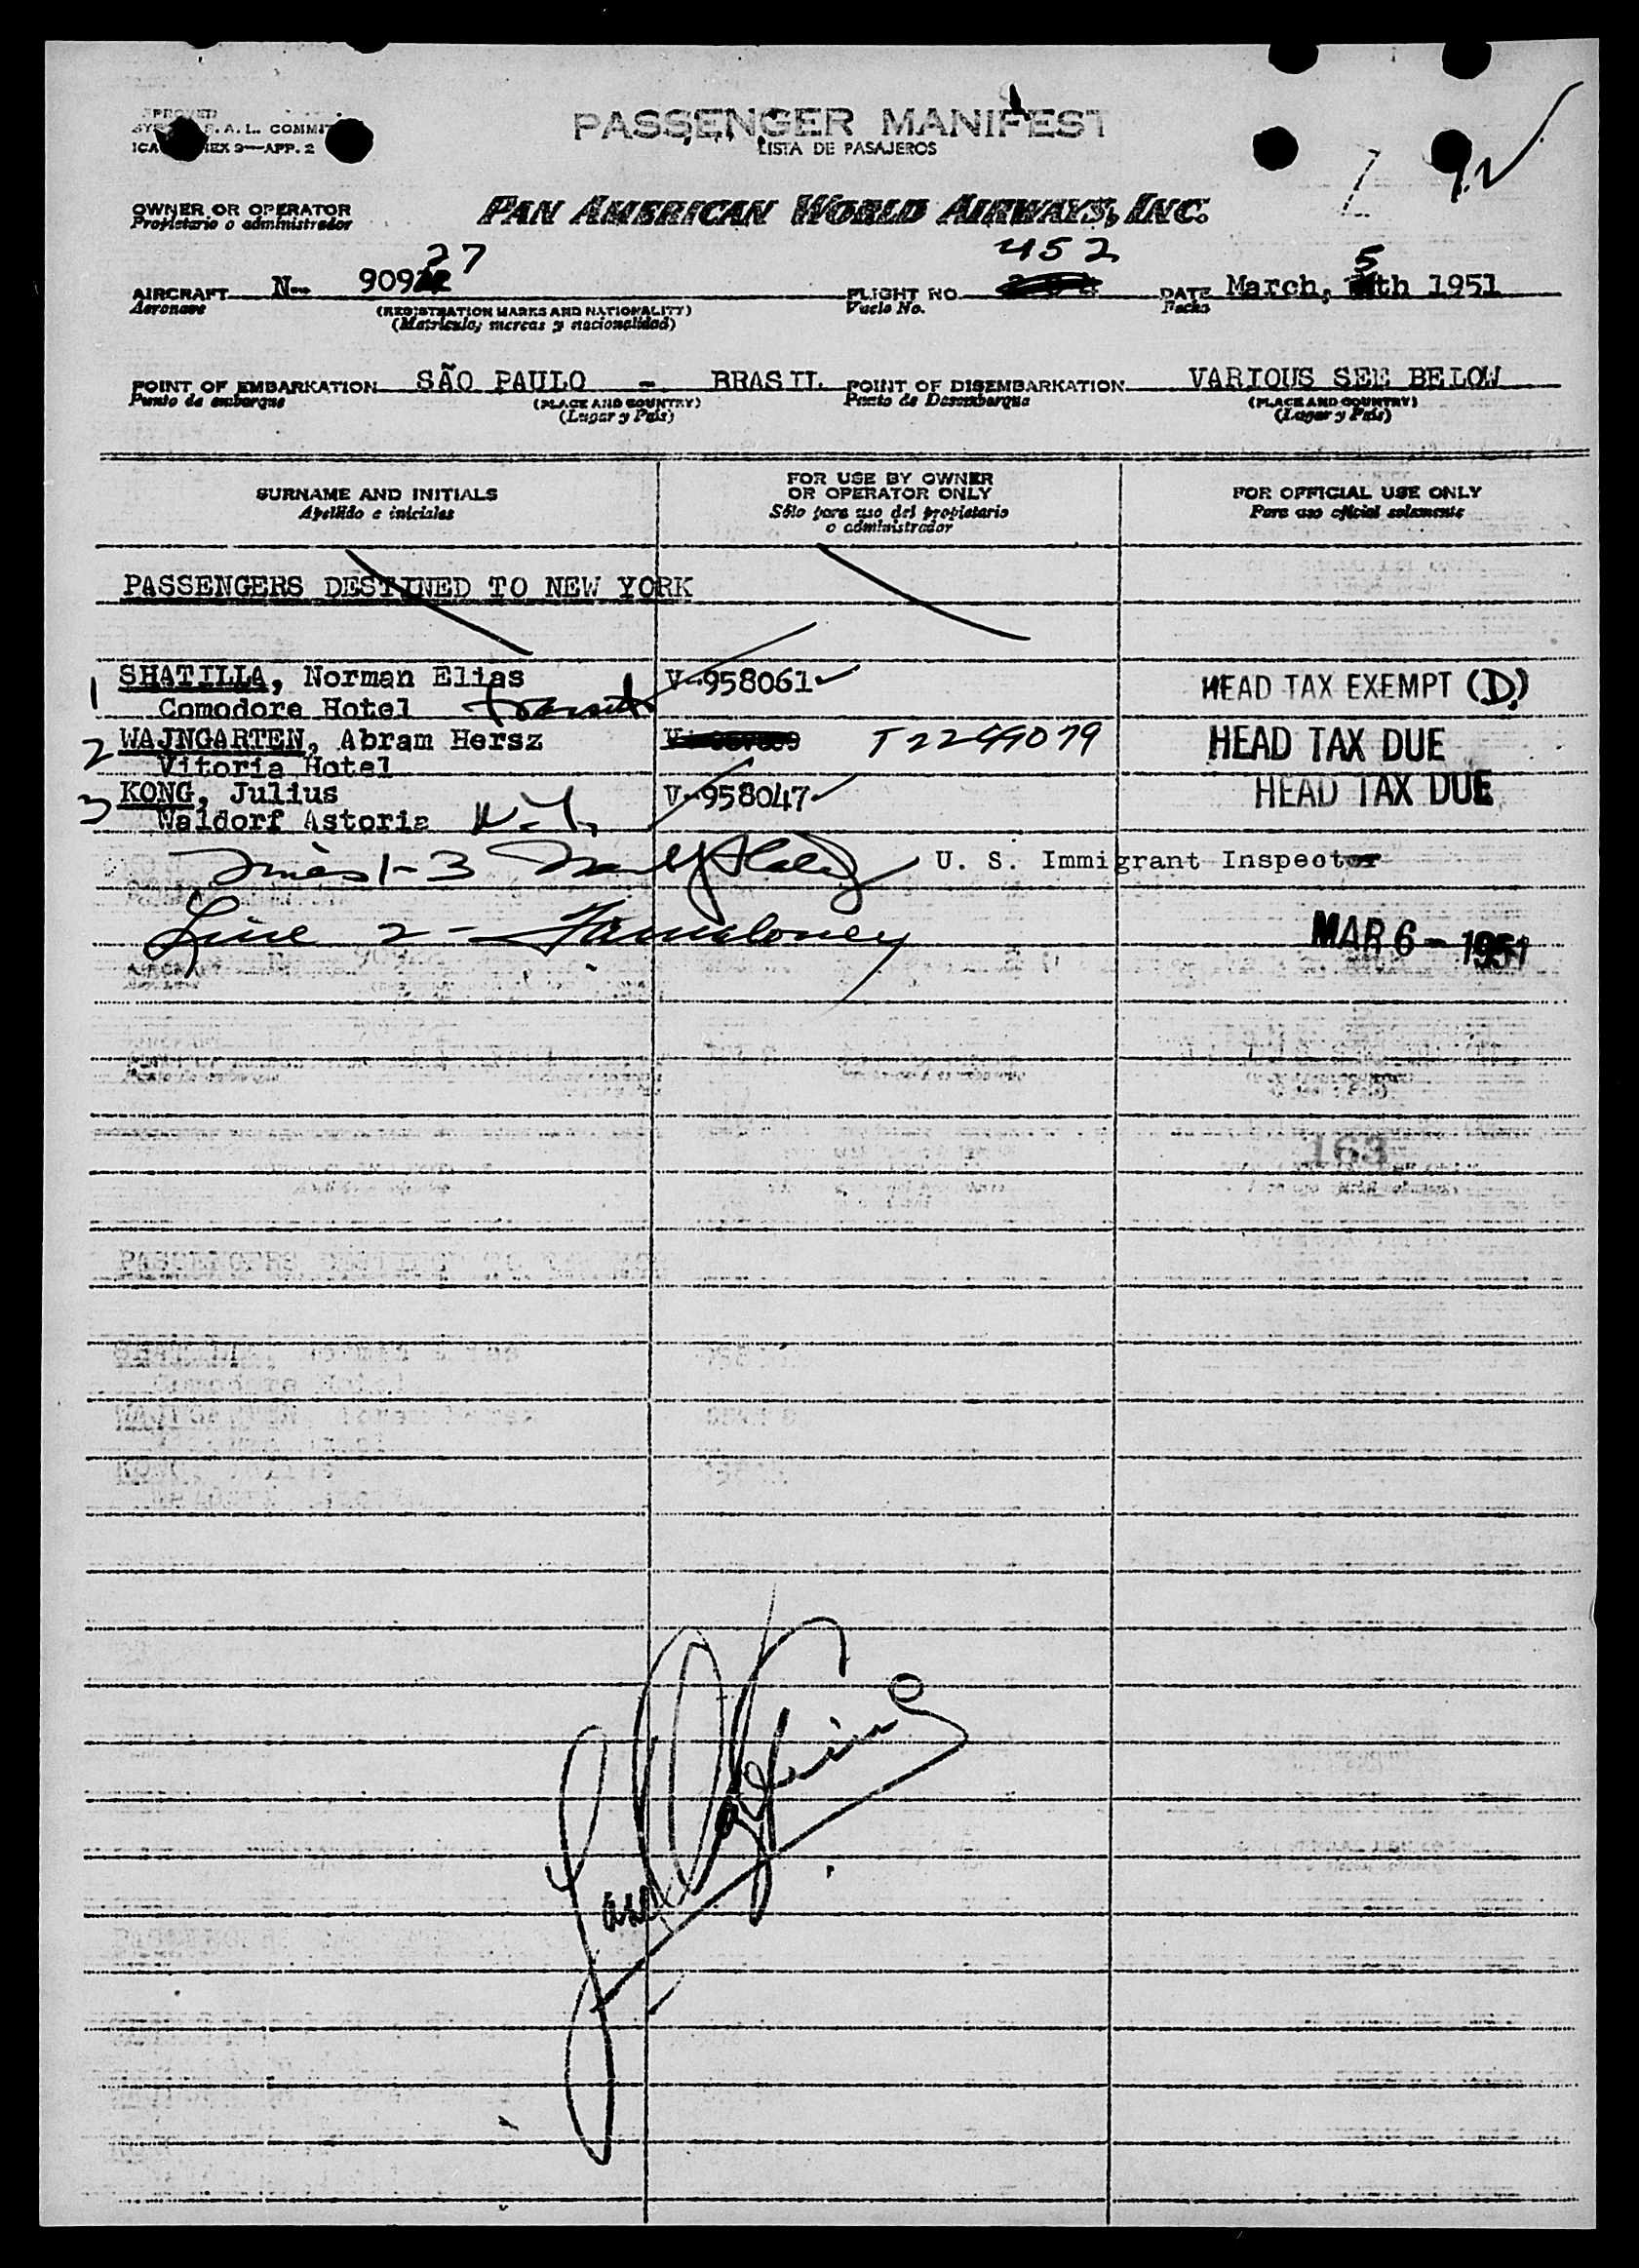 PASSENGER MANIFEST
LISTA DE PASAJEROS
S. A. L. COMMIT
ICA EX 9—APP. 2
OWNER OR OPERATOR PAN AMERICAN WORLD AIRWAYS, INC.
Propietario o administrador
27 452 5
AIRCRAFT N-- 909 FLIGHT NO. DATE March, th 1951
Aeronave (REGISTRATION MARKS AND NATIONALITY) Vuelo No. Fecha
(Matricula, marcas y nacionalidad)
POINT OF EMBARKATION SÃO PAULO - BRASIL POINT OF DISEMBARKATION VARIOUS SEE BELOW
Punto de embarque (PLACE AND COUNTRY) Punto de Desembarque (PLACE AND COUNTRY)
(Lugar y País) (Lugar y País)
SURNAME AND INITIALS FOR USE BY OWNER OR OPERATOR ONLY FOR OFFICIAL USE ONLY
Apellido e iniciales Sólo para uso del propietario o administrador Para uso oficial solamente
PASSENGERS DESTINED TO NEW YORK
1 SHATILLA, Norman Elias V-958061 HEAD TAX EXEMPT (D)
Comodore Hotel transit
2 WAJNGARTEN, Abram Hersz T2249079 HEAD TAX DUE
Vitoria Hotel
3 KONG, Julius V-958047 HEAD TAX DUE
Waldorf Astoria N.Y.
Lines 1-3 U. S. Immigrant Inspector
Line 2 - MAR 6 - 1951
163